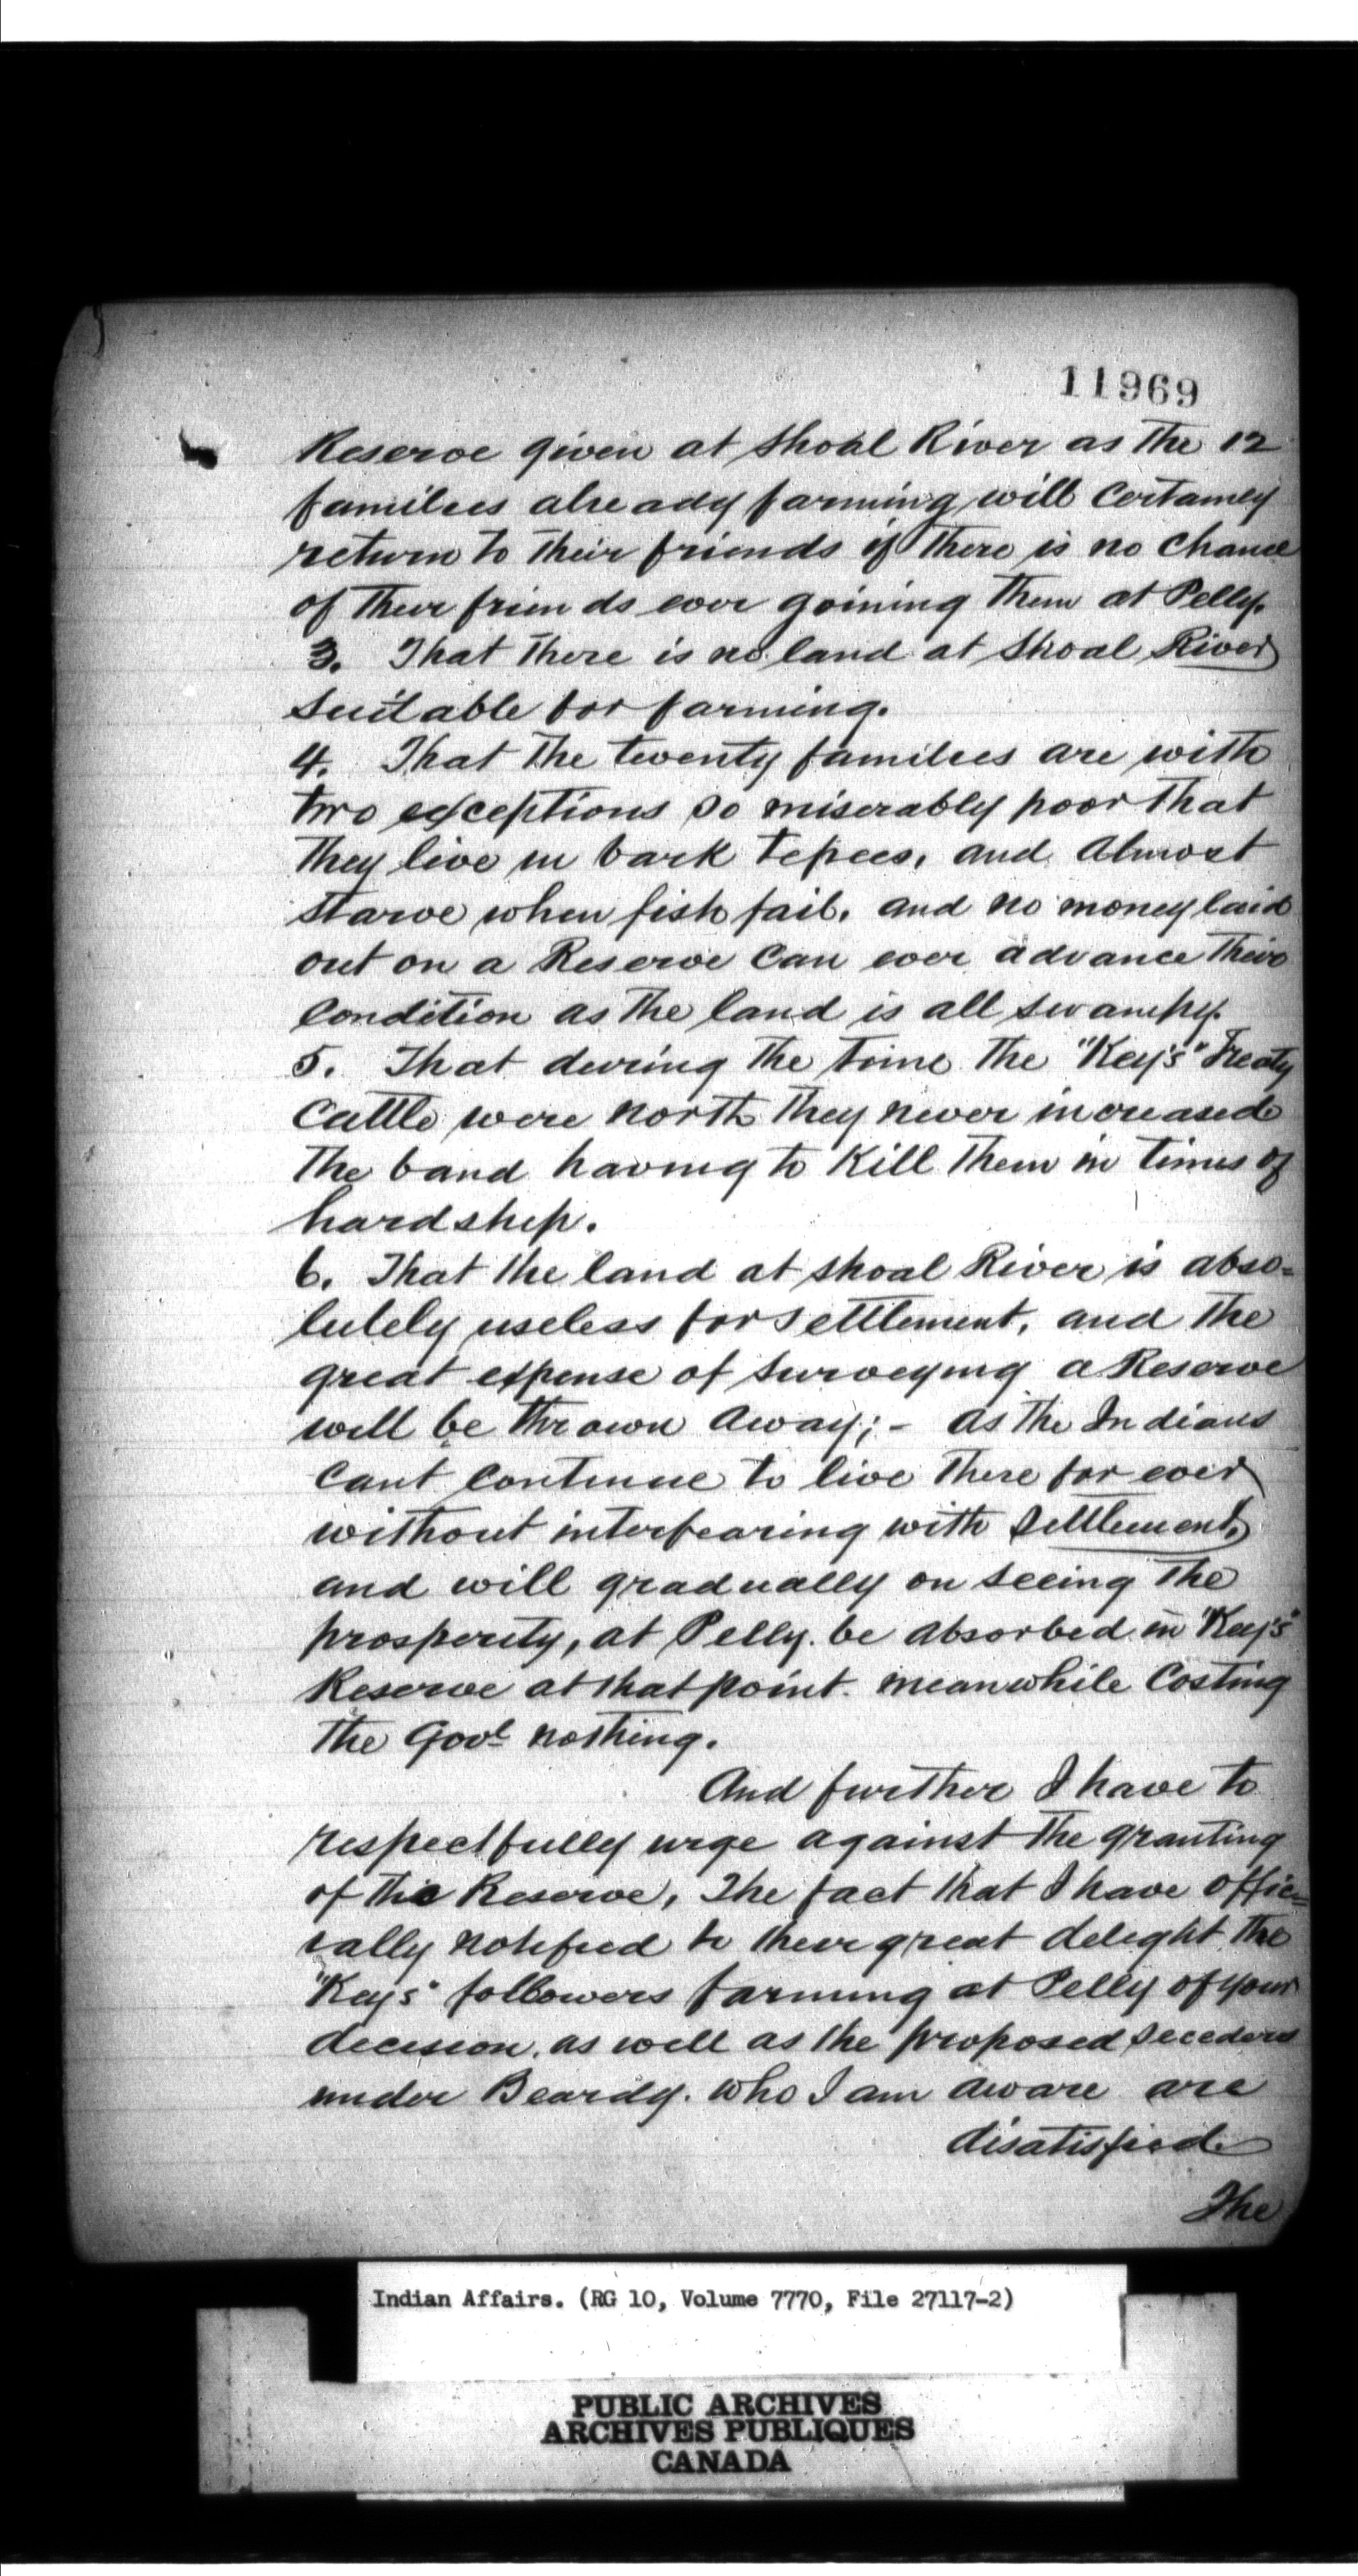 11969
Reserve given at Shoal River as the 12
families already farming will certainly
return to their friends if there is no chance
of their friends ever goining them at Pelly.
3. That there is no land at Shoal River
suitable for farming.
4. That the twenty families are with
two exceptions so miserably poor that
they live in bark tepees, and almost
starve when fish fail. and no money laid
out on a Reserve can ever advance their
condition as the land is all swampy.
5. That during the time the "Key's" Treaty
Cattle were north they never increased
the band having to kill them in times of
hardship.
6. That the land at Shoal River is abso=
lutely useless for settlement, and the
great expense of surveying a Reserve
will be thrown away; - as the Indians
cant continue to live there for ever
without interfearing with settlement,
and will gradually on seeing the
prosperity, at Pelly. be absorbed in "Key's"
Reserve at that point. meanwhile costing
the Govt nothing.
And further I have to
respectfully urge against the granting
of the Reserve, The fact that I have offic=
ially notified to their great delight the
"Key's" followers farming at Pelly of your
decision. as well as the proposed seceders
under Beardy. who I am aware are
disatisfied
The
Indian Affairs. (RG 10, Volume 7770, File 27117-2)
PUBLIC ARCHIVES
ARCHIVES PUBLIQUES
CANADA